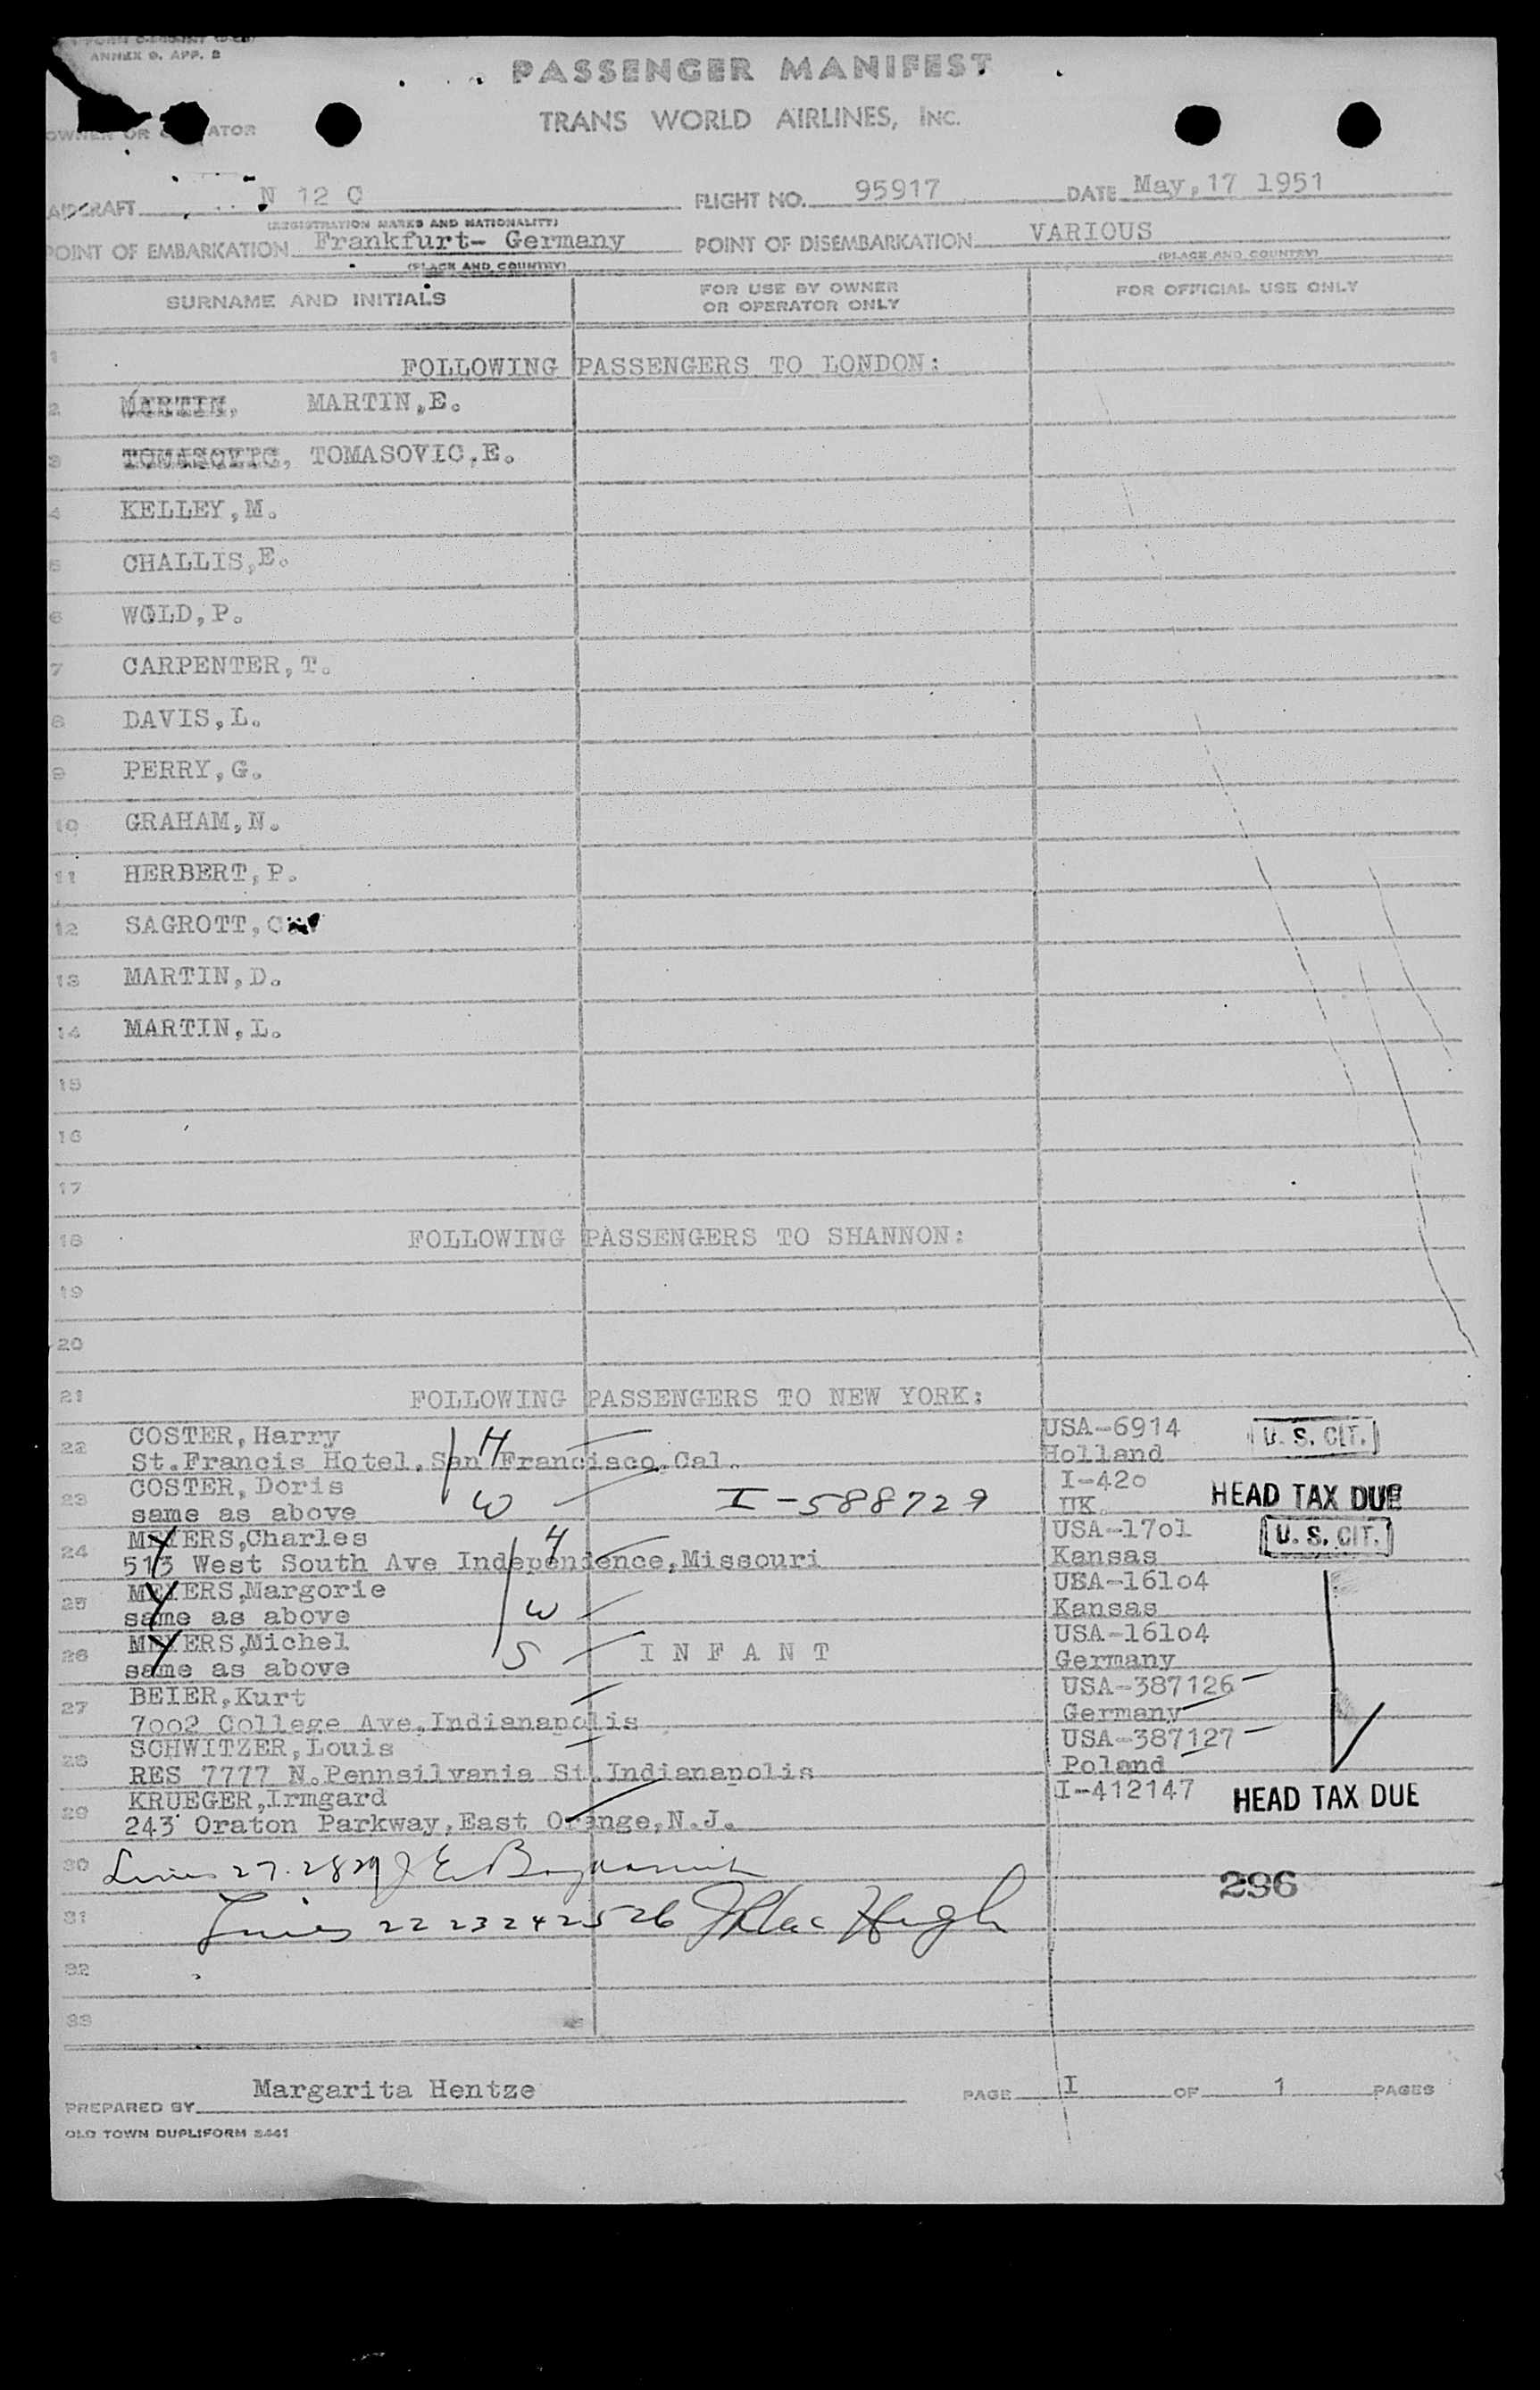 ANNEX 9, APP. B
PASSENGER MANIFEST
TRANS WORLD AIRLINES, INC.
OWNER OR OPERATOR
AIRCRAFT N 12 C FLIGHT NO. 95917 DATE May,17 1951
(REGISTRATION MARKS AND NATIONALITY)
POINT OF EMBARKATION Frankfurt- Germany POINT OF DISEMBARKATION VARIOUS
(PLACE AND COUNTRY) (PLACE AND COUNTRY)
SURNAME AND INITIALS FOR USE BY OWNER OR OPERATOR ONLY FOR OFFICIAL USE ONLY
1 FOLLOWING PASSENGERS TO LONDON:
2 MARTIN, MARTIN,E.
3 TOMASOVIC, TOMASOVIC,E.
4 KELLEY,M.
5 CHALLIS,E.
6 WOLD,P.
7 CARPENTER,T.
8 DAVIS,L.
9 PERRY,G.
10 GRAHAM,N.
11 HERBERT,P.
12 SAGROTT,C
13 MARTIN,D.
14 MARTIN,L.
15
16
17
18 FOLLOWING PASSENGERS TO SHANNON:
19
20
21 FOLLOWING PASSENGERS TO NEW YORK:
22 COSTER,Harry H USA-6914 U. S. CIT.
St.Francis Hotel,San Francisco,Cal. Holland
23 COSTER,Doris W I-588729 I-42o HEAD TAX DUE
same as above UK.
24 MEYERS,Charles H USA-17o1 U. S. CIT.
513 West South Ave Independence,Missouri Kansas
25 MEYERS,Margorie W USA-161o4
same as above Kansas
26 MEYERS,Michel S I N F A N T USA-161o4
same as above Germany
27 BEIER,Kurt USA-387126
7oo2 College Ave,Indianapolis Germany
28 SCHWITZER,Louis USA-387127
RES 7777 N.Pennsilvania St.Indianapolis Poland
29 KRUEGER,Irmgard I-412147 HEAD TAX DUE
243 Oraton Parkway,East Orange,N.J.
30 Lines 27.28 29 J E 296
31 Lines 22 23 24 25 26
32
33
PREPARED BY Margarita Hentze PAGE I OF 1 PAGES
OLD TOWN DUPLIFORM 2441